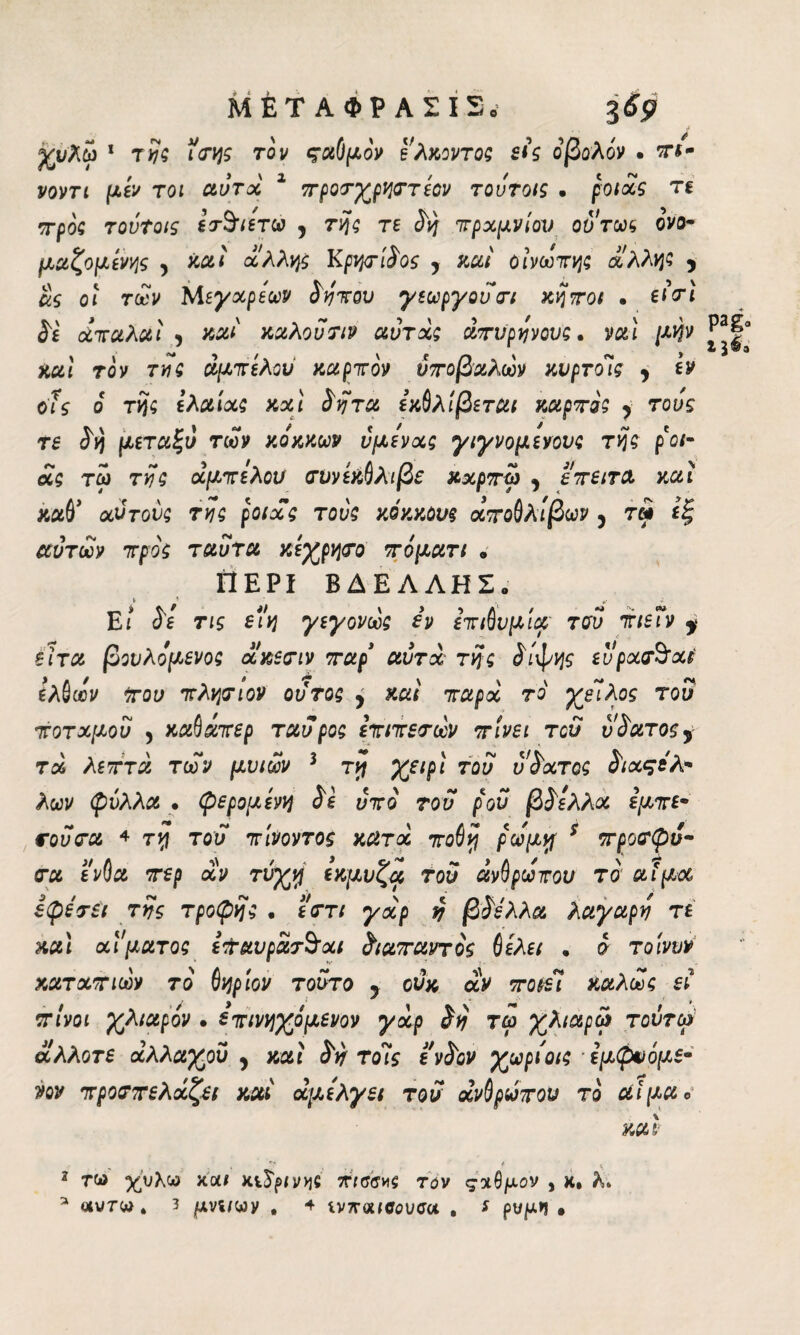 ΜΕΤΑΦΡΑΣΙΣ. 369
χυλῷ ¹ τῆς ἴσης τὸν ϛαθμὸν ἕλκοντος εἰς ὀβολόν . πί-
νοντι μέν τοι αὐτὰ ² προσχρηστέον τούτοις . ῥοιᾶς τε
πρὸς τούτοις ἐσθιέτω , τῆς τε δὴ πραμνίου οὕτως ὀνο-
μαζομένης , καὶ ἄλλης Κρησίδος , καὶ οἰνώπης ἄλλης ,
ἃς οἱ τῶν Μεγαρέων δήπου γεωργοῦσι κῆποι . εἰσὶ
δὲ ἁπαλαὶ , καὶ καλοῦσιν αὐτὰς ἀπυρήνους. ναὶ μὴν
Pag.
236.
καὶ τὸν τῆς ἀμπέλου καρπὸν ὑποβαλὼν κυρτοῖς , ἐν
οἷς ὁ τῆς ἐλαίας καὶ δῆτα ἐκθλίβεται καρπὸς , τούς
τε δὴ μεταξὺ τῶν κόκκων ὑμένας γιγνομένους τῆς ῥοι-
ᾶς τῷ τῆς ἀμπέλου συνέκθλιβε καρπῷ , ἔπειτα καὶ
καθ’ αὑτοὺς τῆς ῥοιᾶς τοὺς κόκκους ἀποθλίβων , τῷ ἐξ
αὐτῶν πρὸς ταῦτα κέχρησο πόματι .
ΠΕΡΙ ΒΔΕΛΛΗΣ.
Εἰ δέ τις εἴη γεγονὼς ἐν ἐπιθυμίᾳ τοῦ πιεῖν ,
εἶτα βουλόμενος ἄκεσιν παρ’ αὐτὰ τῆς δίψης εὕρασθαι
ἐλθὼν που πλησίον οὗτος , καὶ παρὰ τὸ χεῖλος τοῦ
ποταμοῦ , καθάπερ ταῦρος ἐπιπεσὼν πίνει τοῦ ὕδατος,
τὰ λεπτὰ τῶν μυιῶν ³ τῇ χειρὶ τοῦ ὕδατος διαϛέλ-
λων φύλλα . φερομένη δὲ ὑπὸ τοῦ ῥοῦ βδέλλα ἐμπε-
σοῦσα ⁴ τῇ τοῦ πίνοντος κατὰ ποθῇ ῥώμῃ ⁵ προσφύ-
σα ἔνθα περ ἂν τύχῃ ἐκμυζᾷ τοῦ ἀνθρώπου τὸ αἷμα
ἐφέσει τῆς τροφῆς . ἔστι γὰρ ἡ βδέλλα λαγαρή τε
καὶ αἵματος ἐπαυρᾶσθαι διαπαντὸς θέλει . ὁ τοίνυν
καταπιὼν τὸ θηρίον τοῦτο , οὐκ ἂν ποιεῖ καλῶς εἰ
πίνοι χλιαρόν . ἐπινηχόμενον γὰρ δὴ τῷ χλιαρῷ τούτῳ
ἄλλοτε ἀλλαχοῦ , καὶ δὴ τοῖς ἔνδον χωρίοις ἐμφυόμε-
νον προσπελάζει καὶ ἀμέλγει τοῦ ἀνθρώπου τὸ αἷμα.
καὶ
¹ τω χυλω και κεδρινης πισσης τὸν ϛαθμον , κ. λ.
² αυτω . ³ μνειων . ⁴ ενπαισουσα . ⁵ ρυμη .